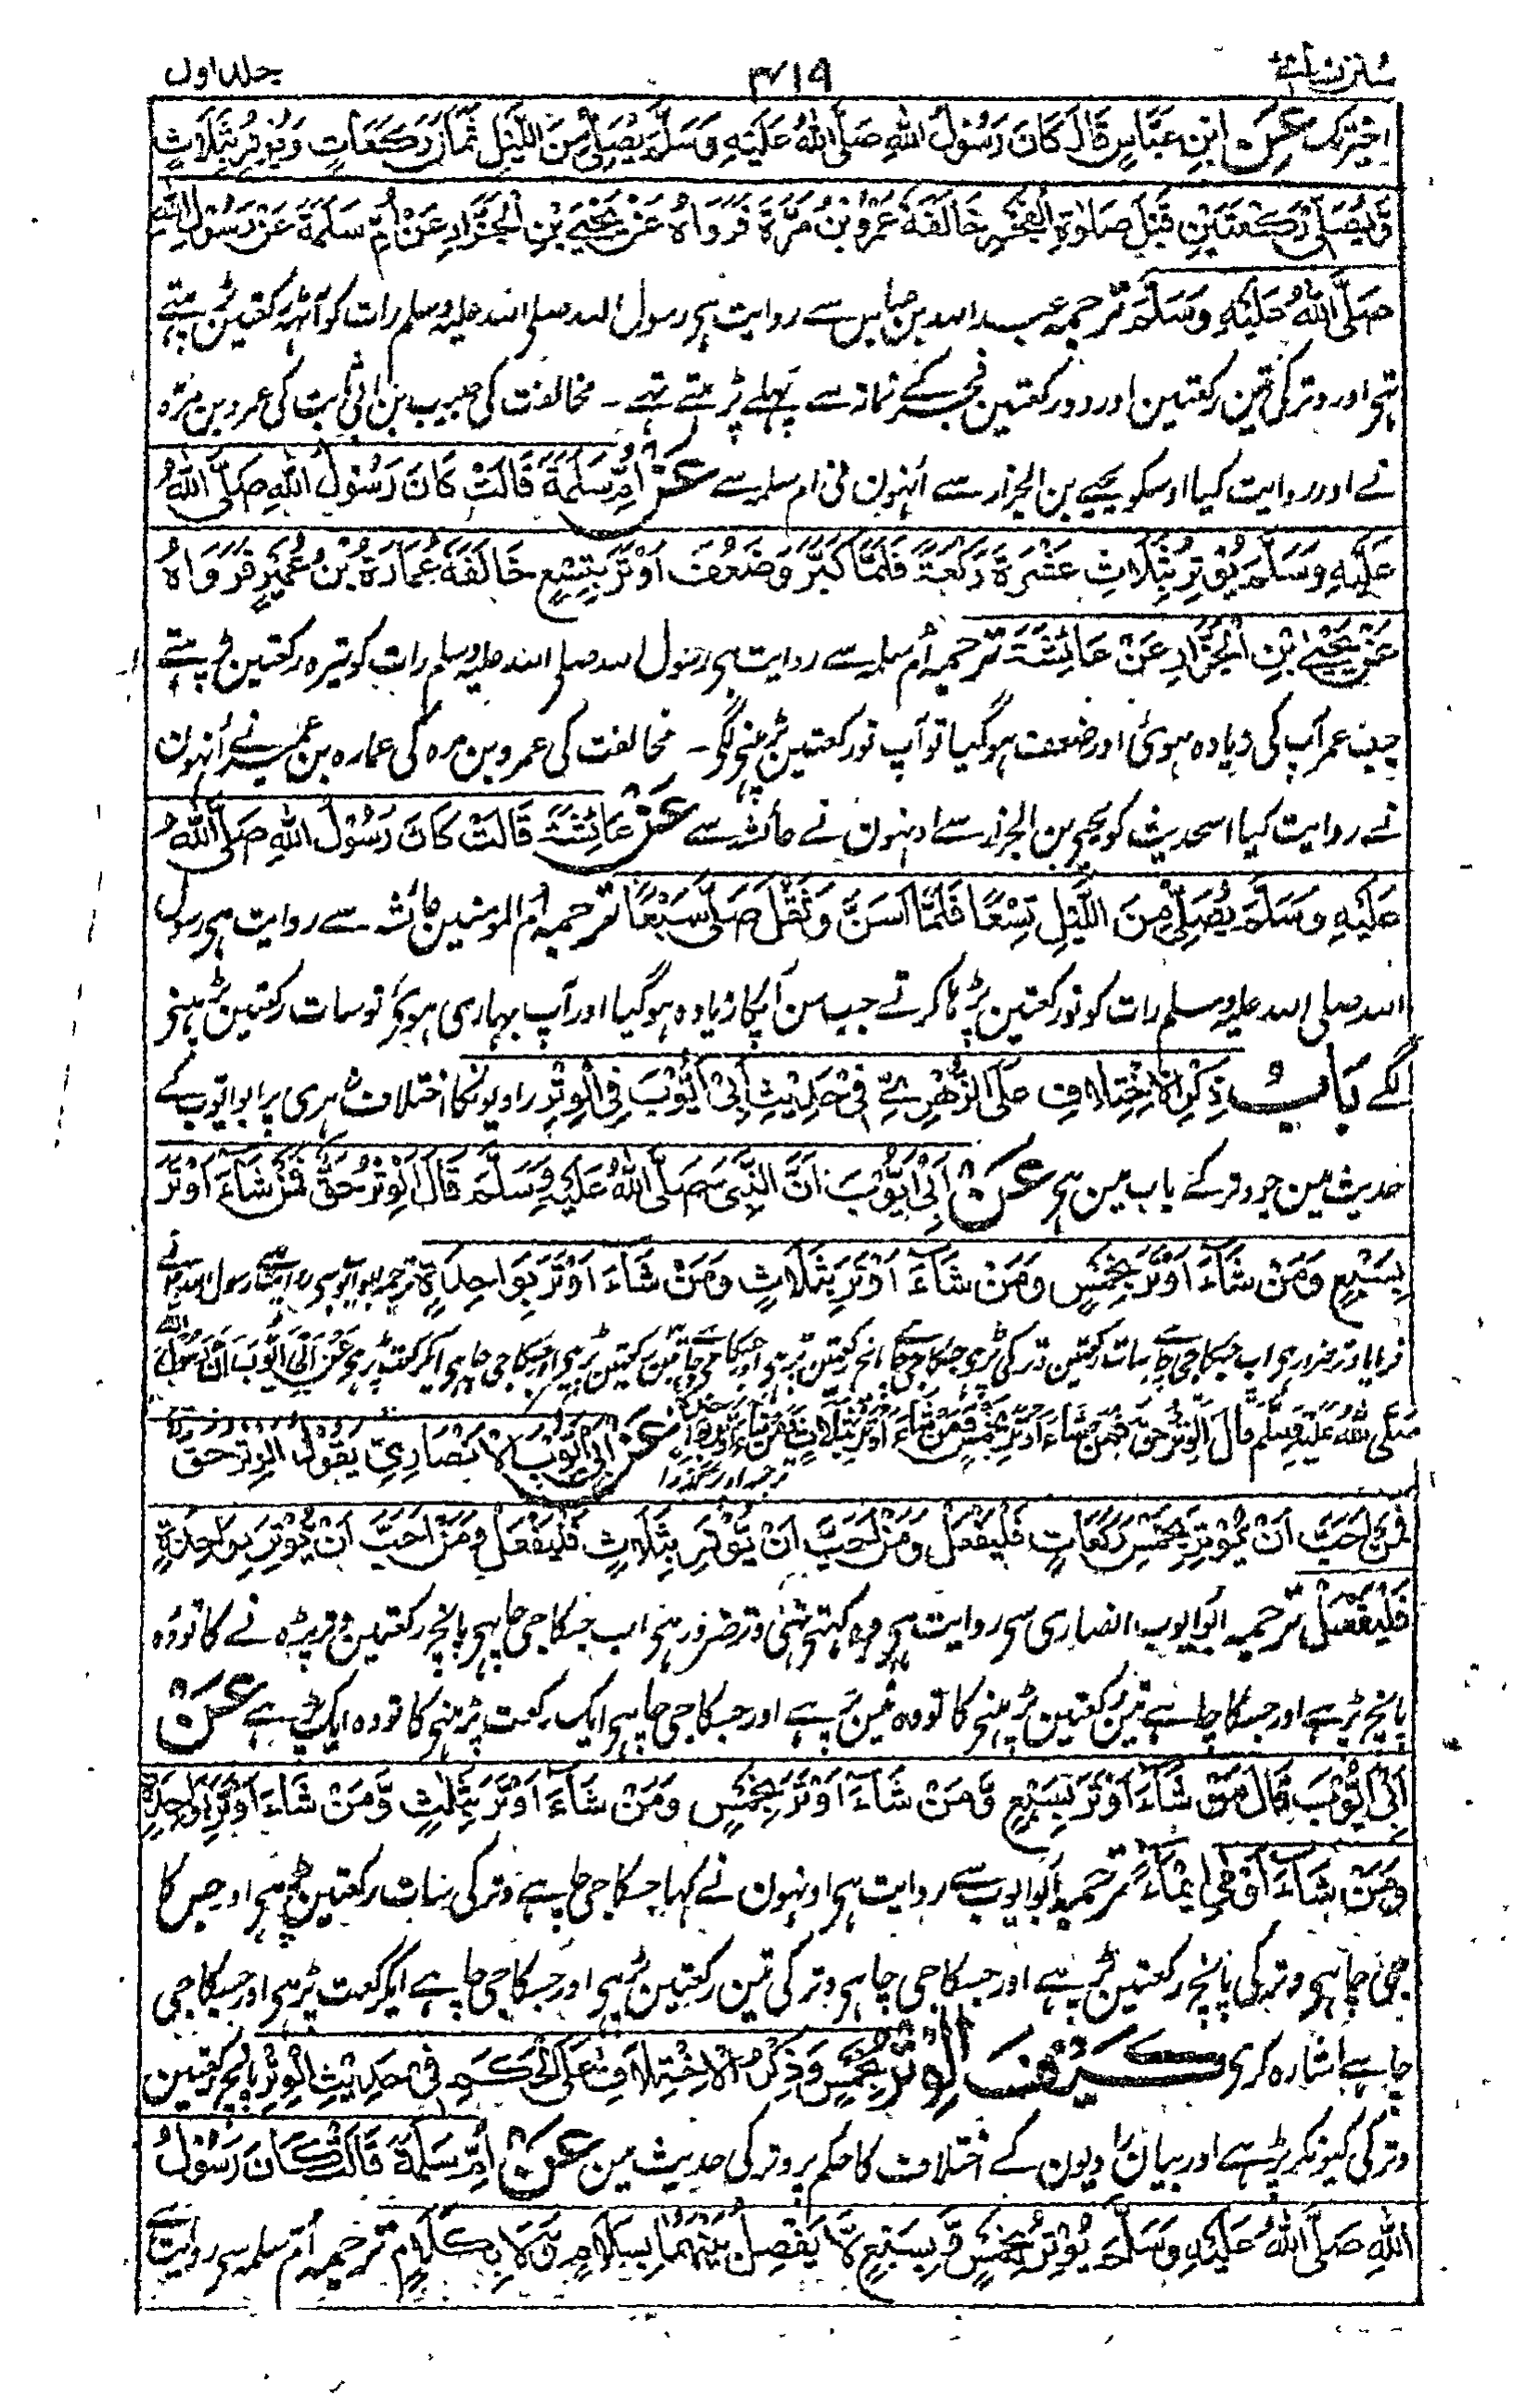 سنن نسائی ۴۱۹ جلد اول
اخیر تک عَنِ ابْنِ عَبَّاسٍ قَالَ كَانَ رَسُوْلُ اللهِ صَلَّى اللهُ عَلَيْهِ وَسَلَّمَ يُصَلِّيْ مِنَ اللَّيْلِ ثَمَانَ رَكَعَاتٍ وَيُوْتِرُ بِثَلَاثٍ
وَّيُصَلِّيْ رَكْعَتَيْنِ قَبْلَ صَلٰوةِ الْفَجْرِ خَالَفَهٗ عَمْرُو بْنُ مُرَّةَ فَرَوَاهُ عَنْ يَحْيَى بْنِ الْجَزَّارِ عَنْ أُمِّ سَلَمَةَ عَنْ رَسُوْلِ اللهِ
صَلَّى اللهُ عَلَيْهِ وَسَلَّمَ ترجمہ عبداللہ بن عباس سے روایت ہی رسول اللہ صلی اللہ علیہ وسلم رات کو آٹھ رکعتین پڑہتے
تہی اور وتر کی تین رکعتین اور دو رکعتین فجر کے نماز سے پہلے پڑہتے تہے ۔ مخالفت کی حبیب بن ابی ثابت کی عمرو بن مرہ
نے اور روایت کیا اوسکو یحیے بن الجزار سے اُنہون نی ام سلمہ سے عَنْ اُمِّ سَلَمَةَ قَالَتْ كَانَ رَسُوْلُ اللهِ صَلَّى اللهُ
عَلَيْهِ وَسَلَّمَ يُوْتِرُ بِثَلَاثِ عَشْرَةَ رَكْعَةً فَلَمَّا كَبُرَ وَضَعُفَ اَوْتَرَ بِتِسْعٍ خَالَفَهٗ عُمَارَةُ بْنُ عُمَيْرٍ فَرَوَاهُ
عَنْ يَحْيَى بْنِ الْجَزَّارِ عَنْ عَائِشَةَ ترجمہ اُم سلمہ سے روایت ہی رسول اللہ صلی اللہ علیہ وسلم رات کو تیرہ رکعتین پڑہتے
جب عمر آپ کی زیادہ ہوئی اور ضعف ہوگیا تو آپ نو رکعتین پڑہنی لگی ۔ مخالفت کی عمرو بن مرہ کی عمارہ بن عمیر نے اُنہون
نے روایت کیا اسحدیث کو یحیی بن الجزار سے اونہون نے عائشہ سے عَنْ عَائِشَةَ قَالَتْ كَانَ رَسُوْلُ اللهِ صَلَّى اللهُ
عَلَيْهِ وَسَلَّمَ يُصَلِّيْ مِنَ اللَّيْلِ تِسْعًا فَلَمَّا اَسَنَّ وَثَقُلَ صَلَّى سَبْعًا ترجمہ اُم المومنین عائشہ سے روایت ہی رسول
اللہ صلی اللہ علیہ وسلم رات کو نو رکعتین پڑہا کرتے جب سن آپکا زیادہ ہوگیا اور آپ بہاری ہو گئے تو سات رکعتین پڑہنی
لگے بَابُ ذِكْرِ الْاِخْتِلَافِ عَلَى الزُّهْرِيِّ فِيْ حَدِيْثِ اَبِيْ اَيُّوْبَ فِي الْوِتْرِ راویونکا اختلاف زہری پر ابو ایوب کے
حدیث مین جو وتر کے باب مین ہی عَنْ اَبِيْ اَيُّوْبَ اَنَّ النَّبِيَّ صَلَّى اللهُ عَلَيْهِ وَسَلَّمَ قَالَ الْوِتْرُ حَقٌّ فَمَنْ شَاءَ اَوْتَرَ
بِسَبْعٍ وَمَنْ شَاءَ اَوْتَرَ بِخَمْسٍ وَمَنْ شَاءَ اَوْتَرَ بِثَلَاثٍ وَمَنْ شَاءَ اَوْتَرَ بِوَاحِدَةٍ ترجمہ ابو ایوب سے روایت ہے رسول اللہ نے
فرمایا وتر ضرور ہی اب جسکا جی چاہے سات رکعتین وتر کی پڑہی جسکا جی چاہے پانچ رکعتین پڑہی اور جسکا جی چاہے تین رکعتین پڑہی اور جسکا جی چاہی ایک رکعت پڑہی عَنْ اَبِيْ اَيُّوْبَ اَنَّ رَسُوْلَ اللهِ
صَلَّى اللهُ عَلَيْهِ وَسَلَّمَ قَالَ الْوِتْرُ حَقٌّ فَمَنْ شَاءَ اَوْتَرَ بِخَمْسٍ وَمَنْ شَاءَ اَوْتَرَ بِثَلَاثٍ وَمَنْ شَاءَ اَوْتَرَ بِوَاحِدَةٍ ترجمہ اوپر گذرا عَنْ اَبِيْ اَيُّوْبَ الْاَنْصَارِيِّ يَقُوْلُ الْوِتْرُ حَقٌّ
فَمَنْ اَحَبَّ اَنْ يُّوْتِرَ بِخَمْسِ رَكَعَاتٍ فَلْيَفْعَلْ وَمَنْ اَحَبَّ اَنْ يُّوْتِرَ بِثَلَاثٍ فَلْيَفْعَلْ وَمَنْ اَحَبَّ اَنْ يُّوْتِرَ بِوَاحِدَةٍ
فَلْيَفْعَلْ ترجمہ ابو ایوب انصاری سی روایت ہی وہ کہتی تہی وتر ضرور ہی اب جسکا جی چاہی پانچ رکعتین وتر پڑہ نے کا تو وہ
پانچ پڑہے اور جسکا چاہے تین رکعتین پڑہنی کا تو وہ تین پڑہے اور جسکا جی چاہی ایک رکعت پڑہنی کا تو وہ ایک پڑہے عَنْ
اَبِيْ اَيُّوْبَ قَالَ مَنْ شَاءَ اَوْتَرَ بِسَبْعٍ وَّمَنْ شَاءَ اَوْتَرَ بِخَمْسٍ وَمَنْ شَاءَ اَوْتَرَ بِثَلٰثٍ وَّمَنْ شَاءَ اَوْتَرَ بِوَاحِدَةٍ
وَمَنْ شَاءَ اَوْمٰى اِيْمَاءً ترجمہ ابو ایوب سے روایت ہی اونہون نے کہا جسکا جی چاہے وتر کی سات رکعتین پڑہی اور جس کا
جی چاہی وتر کی پانچ رکعتین پڑہے اور جسکا جی چاہی وتر کی تین رکعتین پڑہی اور جسکا جی چاہے ایک رکعت پڑہی اور جسکا جی
چاہے اشارہ کری كَيْفَ الْوِتْرُ بِخَمْسٍ وَذِكْرُ الْاِخْتِلَافِ عَلَى الْحَكَمِ فِيْ حَدِيْثِ الْوِتْرِ پانچ رکعتین
وتر کی کیونکر پڑہے اور بیان راویون کے اختلاف کا حکم پر وتر کی حدیث مین عَنْ اُمِّ سَلَمَةَ قَالَتْ كَانَ رَسُوْلُ
اللهِ صَلَّى اللهُ عَلَيْهِ وَسَلَّمَ يُوْتِرُ بِخَمْسٍ وَّبِسَبْعٍ لَّا يَفْصِلُ بَيْنَهُمَا بِسَلَامٍ وَّلَا بِكَلَامٍ ترجمہ اُم سلمہ سی روایت ہے